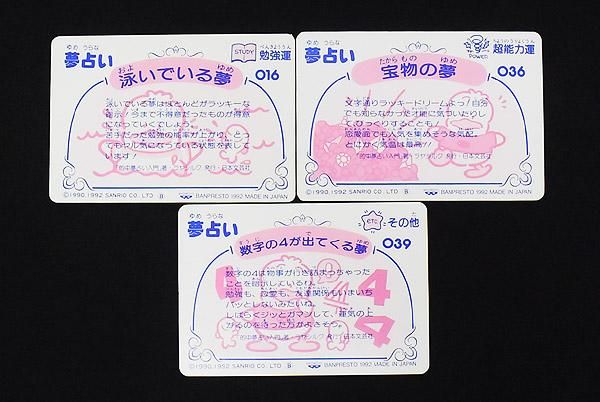 ゆめ うらな
夢占い
STUDY
べんきょううん
勉強運
およ ゆめ
泳いでいる夢
016
泳いでいる夢はほとんどがラッキーな
暗示！今まで不得意だったものが得意
になっていくでしょう。
苦手だった勉強の能率が上がり、とっ
てもヤル気になっている状態を表して
います！
©1990,1992 SANRIO CO., LTD. B
BANPRESTO 1992 MADE IN JAPAN
ゆめ うらな
夢占い
POWER
ちょうのうりょくうん
超能力運
たからもの ゆめ
宝物の夢
036
文字通りラッキードリームよう！自分
でも知らなかった才能に気づいたりし
てびっくりすることも！
恋愛面でも人気を集めそうな気配。
とにかく気運は最高！！
©1990,1992 SANRIO CO., LTD. B
BANPRESTO 1992 MADE IN JAPAN
ゆめ うらな
夢占い
etc.
その他
すうじ で ゆめ
数字の4が出てくる夢
039
数字の4は物事が行き詰まっちゃった
ことを暗示しているわ。
勉強も、恋愛も、友達関係もいまいち
パッとしないみたいね。
しばらくジッとガマンして、運気の上
がるのを待った方がよさそう。
4
4
©1990,1992 SANRIO CO., LTD. B
BANPRESTO 1992 MADE IN JAPAN